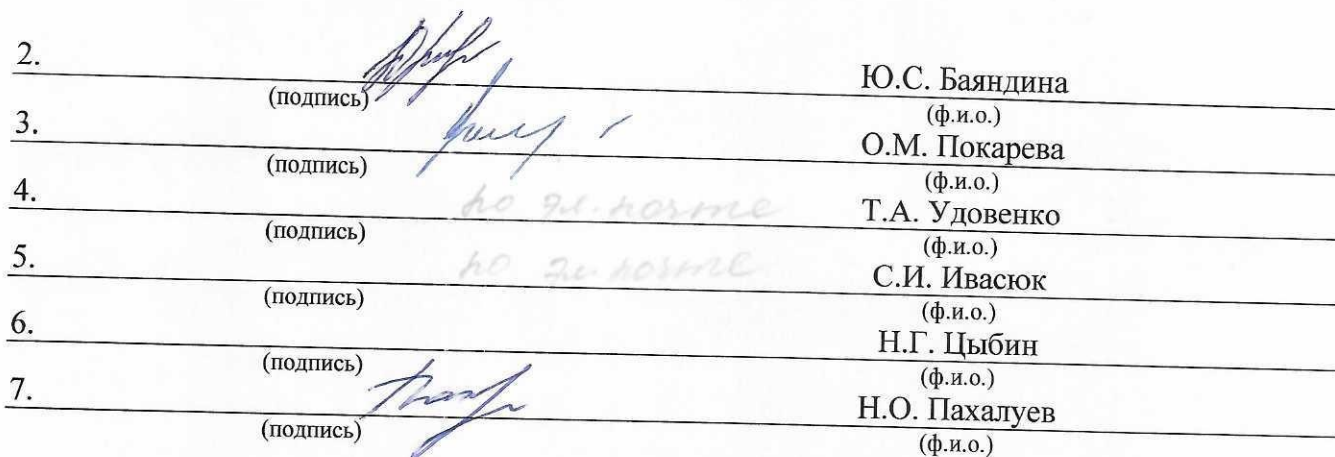 2. Ю.С. Баяндина
(подпись) (ф.и.о.)
3. О.М. Покарева
(подпись) (ф.и.о.)
4. по эл. почте Т.А. Удовенко
(подпись) (ф.и.о.)
5. по эл. почте С.И. Ивасюк
(подпись) (ф.и.о.)
6. Н.Г. Цыбин
(подпись) (ф.и.о.)
7. Н.О. Пахалуев
(подпись) (ф.и.о.)